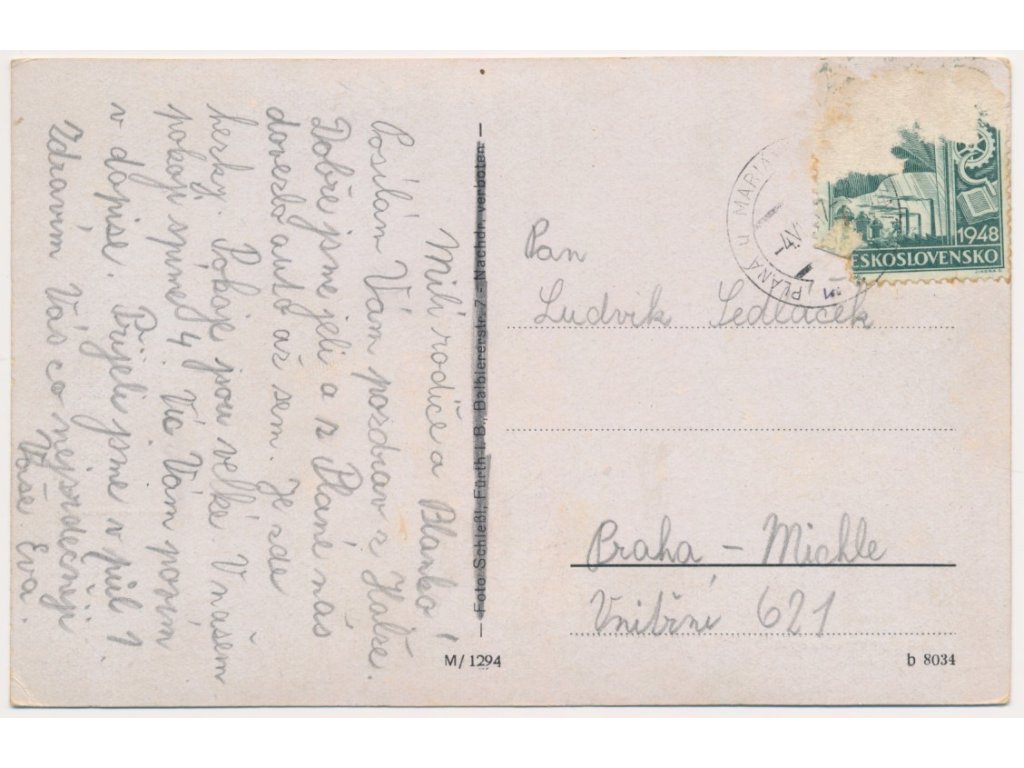 Milí rodiče a Blanko!
Posílám Vám pozdrav z Halže.
Dobře jsme jeli a z Plané nás
dovezlo auto až sem. Je zde
hezky. Pokoje jsou velké. V našem
pokoji spíme 4. Víc Vám povím
v dopise. Přijeli jsme v půl 1
Zdravím Vás co nejsrdečněji
Vaše Eva.
— Foto Schießl, Fürth i. B., Balbiererstr. 7 - Nachdr. verboten —
M/1294
PLANÁ U MARIÁ
1948
ESKOSLOVENSKO
Pan
Ludvík Sedláček
Praha - Michle
Vnitřní 621
b 8034